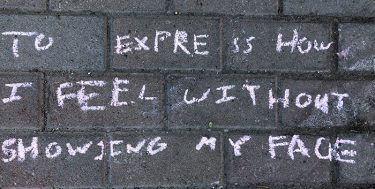 TO EXPRE is HOW
I FEEL WITHOUT
SHOWING MY FACE